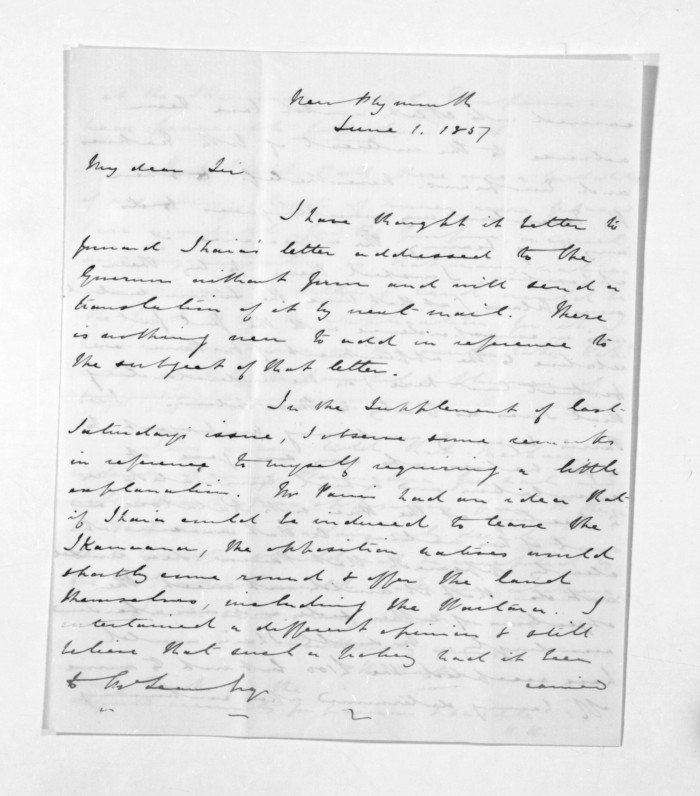 New Plymouth
June 1. 1857
My dear Sir
I have thought it better to
forward Ihaia's letter addressed to the
Governor without          and will send a
translation of it by next mail. There
is nothing new to add in reference to
the subject of that letter.
In the Supplement of last
Saturday's issue, I observe some remarks
in reference to myself requiring a little
explanation. Mr Parris had an idea that
if Ihaia could be induced to leave the
Ikamoana, the opposition natives would
shortly come round & offer the land
themselves, including the Waitara. I
entertained a different opinion & still
believe that such a            had it been
carried
to